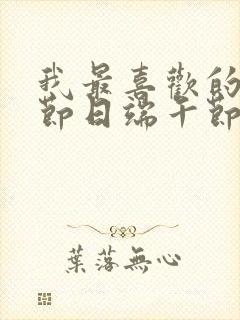 我最喜歡的
節日端午節
葉落無心